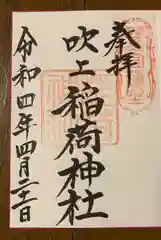 奉拝
吹上稲荷神社
令和四年四月二十一日